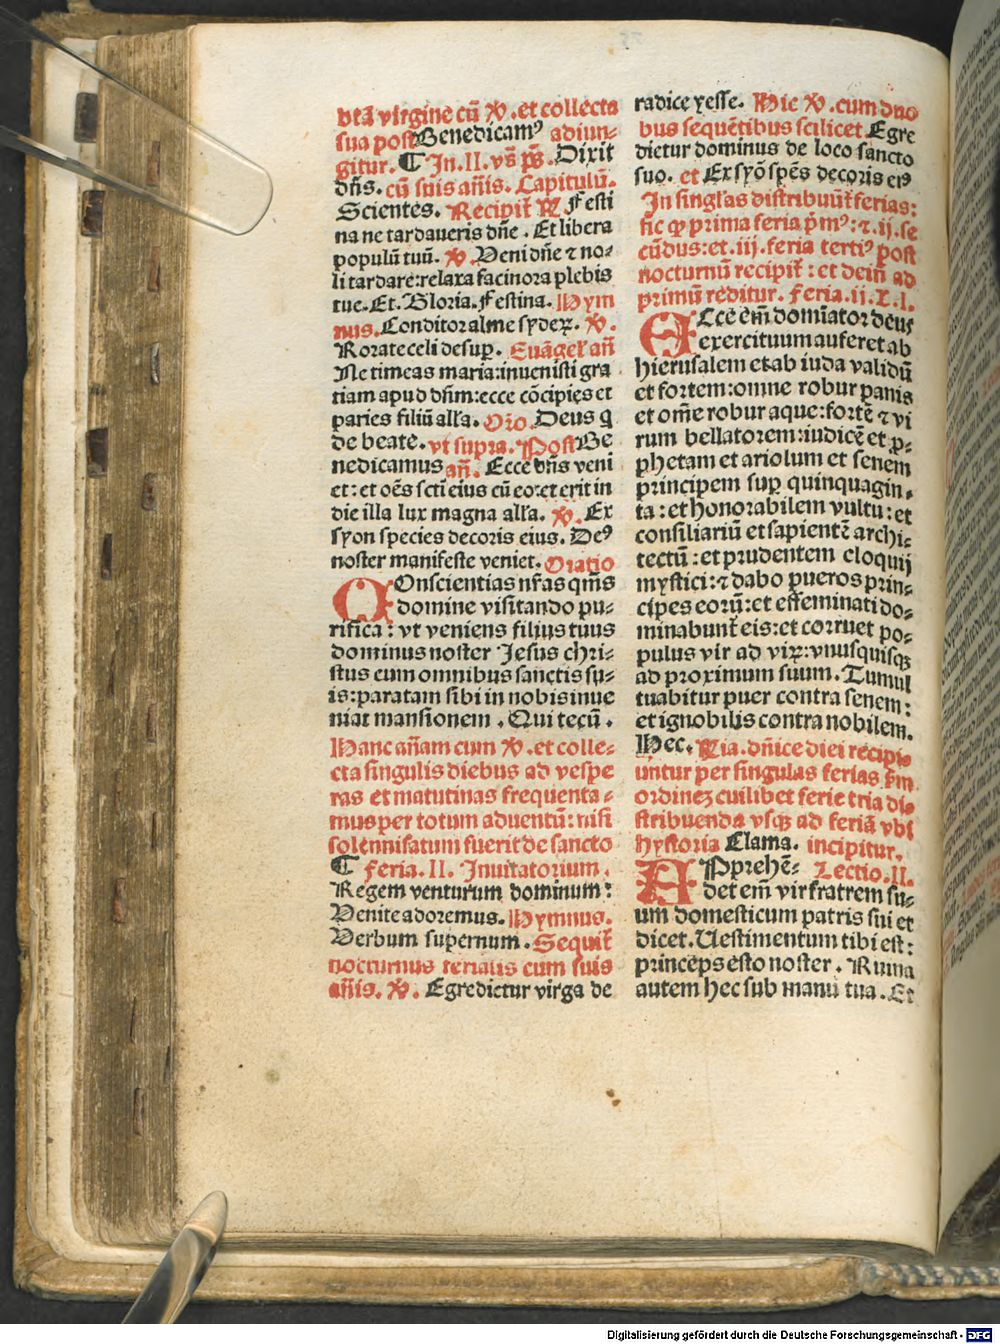 btā virgine cū ℣. et collecta
sua post Benedicamꝰ adiun-
gitur. ¶ In .II. vs̄ ps̄. Dixit
dn̄s. cū suis añis. Capitulū.
Scientes. Recipiť ℟ Festi
na ne tardaueris dn̄e. Et libera
populū tuū. ℣. Veni dn̄e ⁊ no-
li tardare: relaxa facinora plebis
tue. Et. Gloria. Festina. Hym
nus. Conditor alme syderꝝ. ℣.
Rorate celi desuꝑ. Euāgeł añ
Ne timeas maria: inuenisti gra
tiam apud dn̄m: ecce cōcipies et
paries filiū alľa. Oro. Deus q
de beate. vt supra. Post Be
nedicamus añ. Ecce dn̄s veni
et: et oēs scti eius cū eo: et erit in
die illa lux magna alľa. ℣. Ex
syon species decoris eius. Deꝰ
noster manifeste veniet. Oratio
COnscientias nr̄as qm̄s
domine visitando pu-
rifica: vt veniens filius tuus
dominus noster Jesus chri-
stus cum omnibus sanctis su-
is: paratam sibi in nobis inue
niat mansionem. Qui tecū.
Hanc añam cum ℣. et colle-
cta singulis diebus ad vespe
ras et matutinas frequenta-
mus per totum aduentū: nisi
solennisatum fuerit de sancto
¶ feria. II. Inuitatorium.
Regem venturum dominum:
Venite adoremus. Hymnus.
Verbum supernum. Sequiť
nocturnus ferialis cum suis
añis. ℣. Egredietur virga de
radice yesse. Hic ℣. cum duo
bus sequētibus scilicet Egre
dietur dominus de loco sancto
suo. et Ex syō spēs decoris eiꝰ
In singľas distribuūť ferias:
sic ꝙ prima feria p̄mꝰ: ⁊. ij. se
cūdus: et. iij. feria tertiꝰ post
nocturnū recipiť: et dein̄ ad
primū reditur. feria. ii. L. I.
ECce em̄ domiātor deus
exercituum auferet ab
hierusalem et ab iuda validū
et fortem: omne robur panis
et om̄e robur aque: fortē ⁊ vi
rum bellatorem: iudicē et ꝓ-
phetam et ariolum et senem
principem suꝑ quinquagin-
ta: et honorabilem vultu: et
consiliariū et sapientē archi-
tectū: et prudentem eloquij
mystici: ⁊ dabo pueros prin-
cipes eorū: et effeminati do-
minabunť eis: et corruet po-
pulus vir ad virꝝ: vnusquisqꝫ
ad proximum suum. Tumul
tuabitur puer contra senem:
et ignobilis contra nobilem.
Hec. Ria. dn̄ice diei recipi-
untur per singulas ferias p̄m
ordinez cuilibet ferie tria di-
stribuenda vsqꝫ ad feriā vbi
hystoria Clama. incipitur.
APprehē- Lectio. II.
det em̄ vir fratrem su-
um domesticum patris sui et
dicet. Uestimentum tibi est:
princeps esto noster. Ruina
autem hec sub manu tua. Et
Digitalisierung gefördert durch die Deutsche Forschungsgemeinschaft - DFG